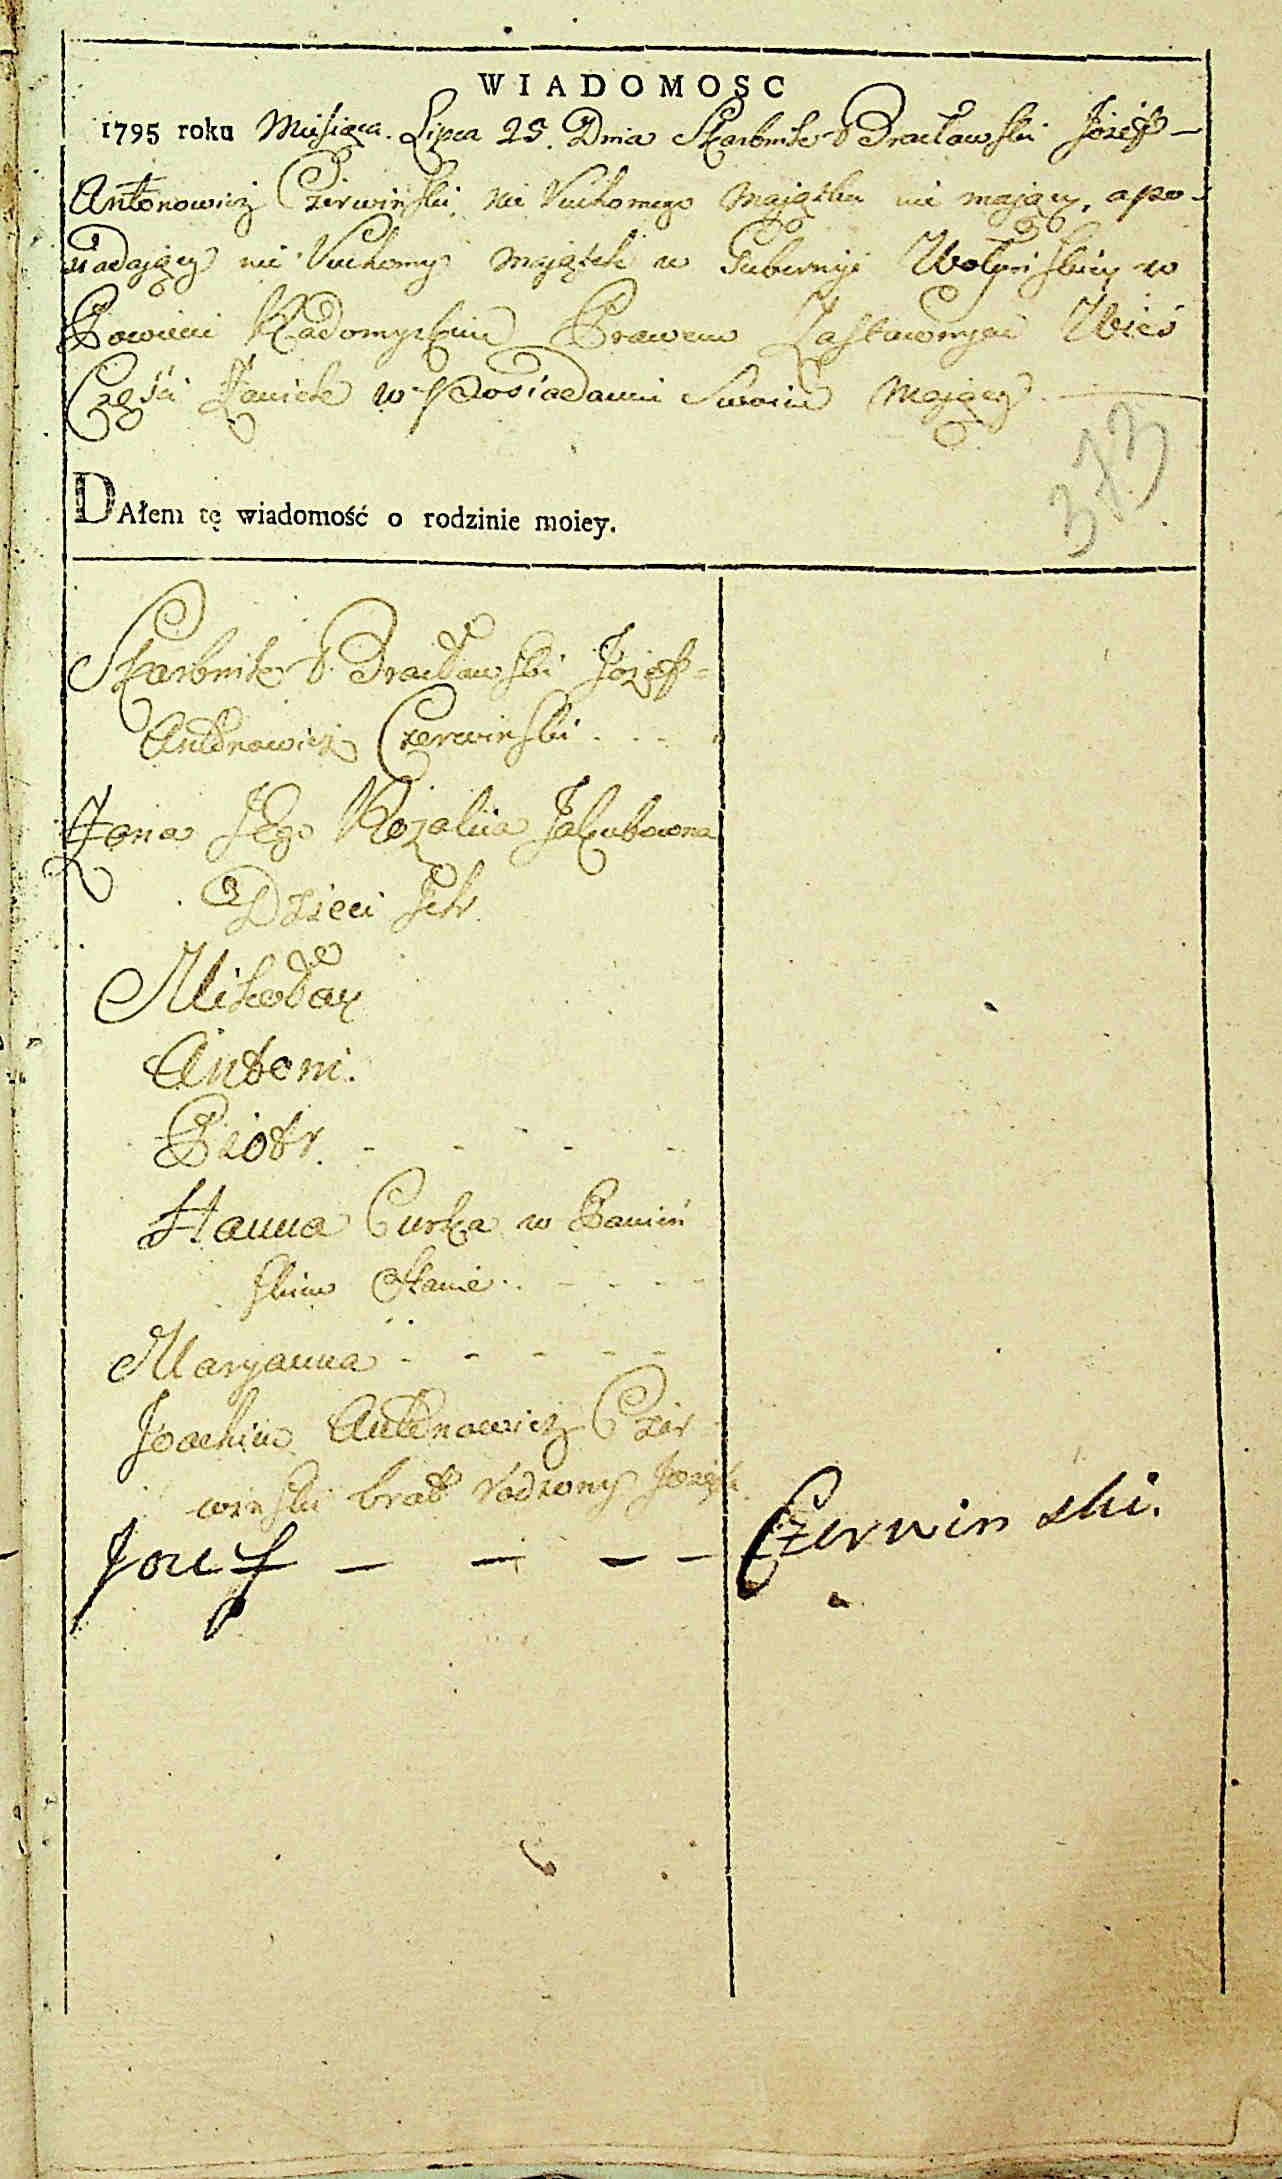 WIADOMOSC
1795 roku Miesiąca. Lipca 25. Dnia Skarbnik Bracławski Jozeff
Antonowicz Czerwinski, nie Ruchomego Majątku nie mający, a po-
siadający nie Ruchomy Majątek w Gubernyi Wołyńskiey w
Powieci Radomyskim Prawem Zastawnym Wieś
Części w Posiadaniu Swoim Mający.
373
DAłem tę wiadomość o rodzinie moiey.
Skarbnik Bracławski Jozeff
Antonowicz Czerwinski
Zona JEgo Rozaliia Jakubowna
Dzieci Ich
Mikołay
Antoni.
Piotr.
Hanna Curka w Panień
skim Stanie.
Maryanna
Joachim Antonowicz Czer
winski brat rodzony Jozefa
Jozef Czerwinski.